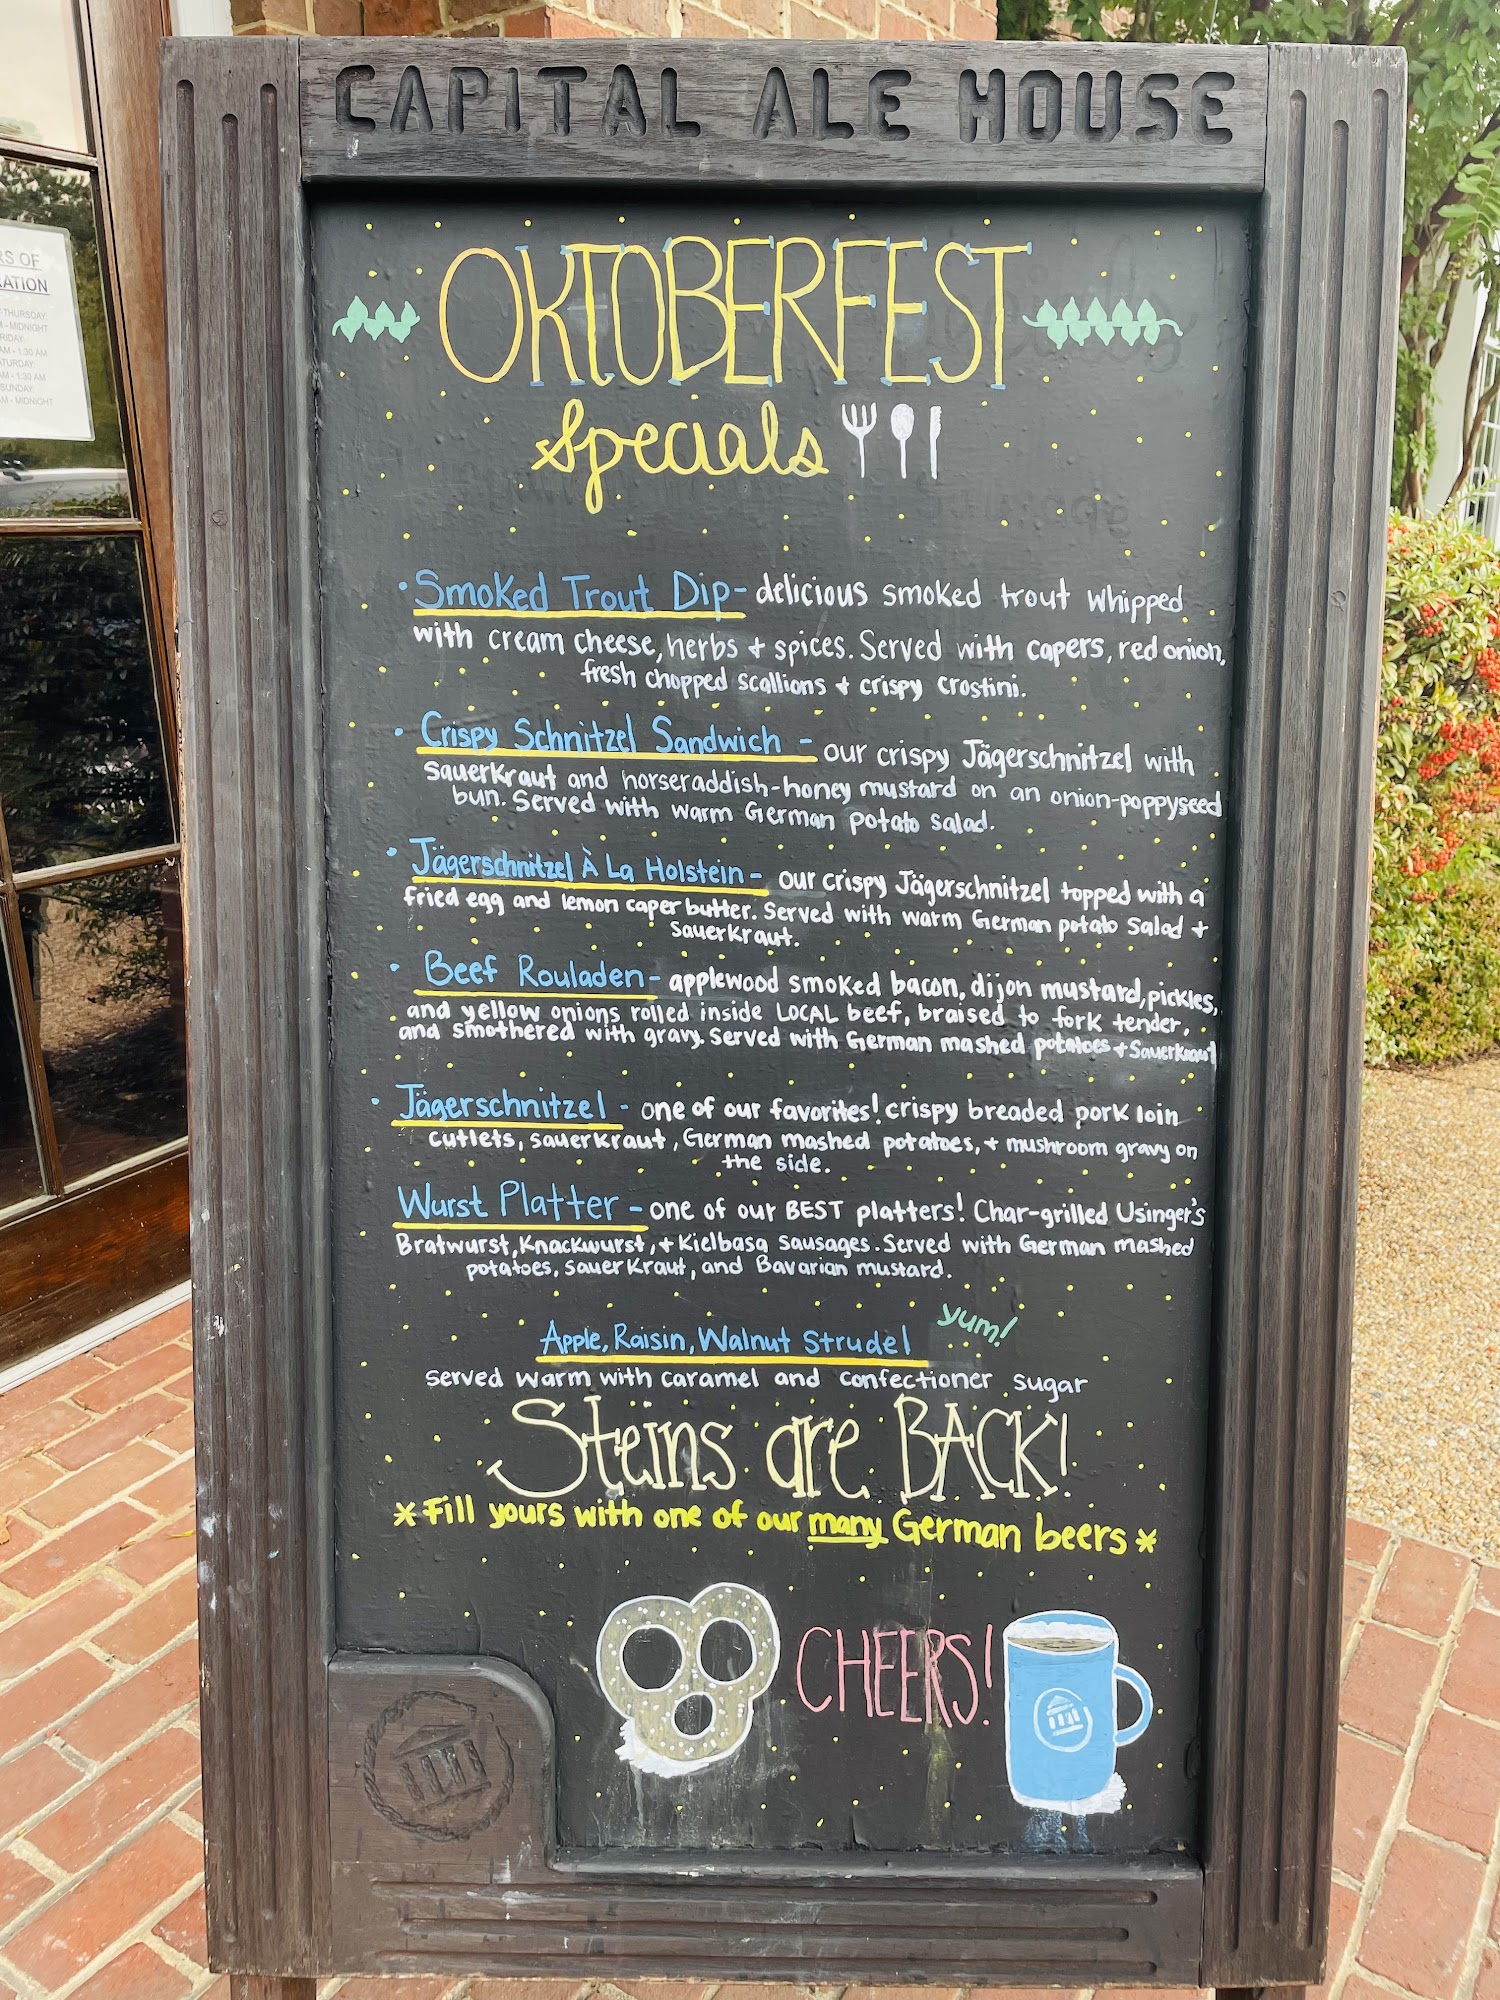 CAPITAL ALE HOUSE
OKTOBERFEST
Specials
• Smoked Trout Dip - delicious smoked trout whipped
with cream cheese, herbs + spices. Served with capers, red onion,
fresh chopped scallions + crispy crostini.
• Crispy Schnitzel Sandwich - our crispy Jägerschnitzel with
sauerkraut and horseraddish-honey mustard on an onion-poppyseed
bun. Served with warm German potato salad.
• Jägerschnitzel À La Holstein - our crispy Jägerschnitzel topped with a
fried egg and lemon caper butter. Served with warm German potato salad +
sauerkraut.
• Beef Rouladen - applewood smoked bacon, dijon mustard, pickles,
and yellow onions rolled inside LOCAL beef, braised to fork tender,
and smothered with gravy. Served with German mashed potatoes + Sauerkraut
• Jägerschnitzel - one of our favorites! crispy breaded pork loin
cutlets, sauerkraut, German mashed potatoes, + mushroom gravy on
the side.
Wurst Platter - one of our BEST platters! Char-grilled Usinger's
Bratwurst, Knackwurst, + Kielbasa sausages. Served with German mashed
potatoes, sauerkraut, and Bavarian mustard.
Apple, Raisin, Walnut Strudel yum!
served warm with caramel and confectioner sugar
Steins are BACK!
* Fill yours with one of our many German beers *
CHEERS!
RS OF
ATION
THURSDAY
M - MIDNIGHT
RIDAY
AM - 1:30 AM
TURDAY
AM - 1:30 AM
SUNDAY
AM - MIDNIGHT